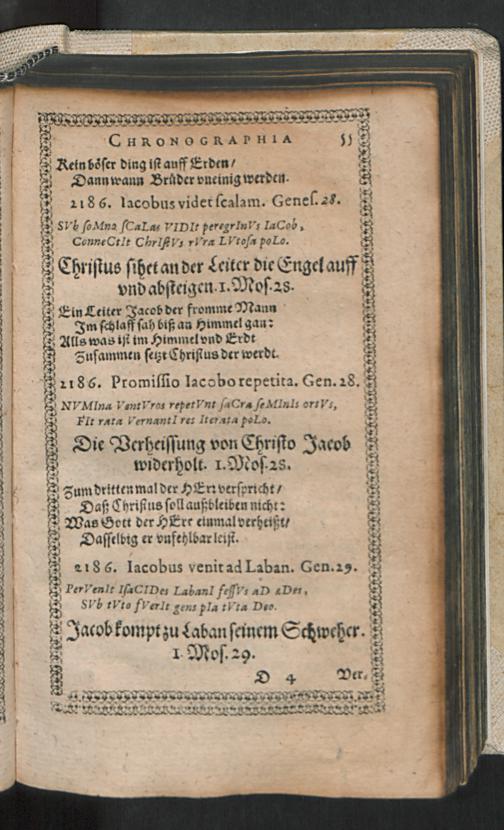 CHRONOGRAPHIA 55
Kein böser ding ist auff Erden/
Dann wann Brüder vneinig werden.
2186. Iacobus videt scalam. Genes. 28.
SVb soMna sCaLas VIDIt peregrInVs IaCob,
ConneCtIt ChrIstVs rVra LVtosa poLo.
Christus sihet an der Leiter die Engel auff
vnd absteigen. 1. Mos. 28.
Ein Leiter Jacob der fromme Mann
Im schlaff sah biß an Himmel gan:
Alls was ist im Himmel vnd Erdt
Zusammen setzt Christus der werdt.
2186. Promissio Iacobo repetita. Gen. 28.
NVMIna VentVros repetVnt saCra seMInIs ortVs,
FIt rata VernantI res Iterata poLo.
Die Verheissung von Christo Jacob
widerholt. 1. Mos. 28.
Zum dritten mal der HErr verspricht/
Daß Christus soll außbleiben nicht:
Was Gott der HErr einmal verheißt/
Dasselbig er vnfehlbar leist.
2186. Iacobus venit ad Laban. Gen. 29.
PerVenIt IsaCIDes LabanI fessVs aD æDes,
SVb tVto fVerIt gens pIa tVta Deo.
Jacob kompt zu Laban seinem Schweher.
1. Mos. 29.
D 4 Ver-